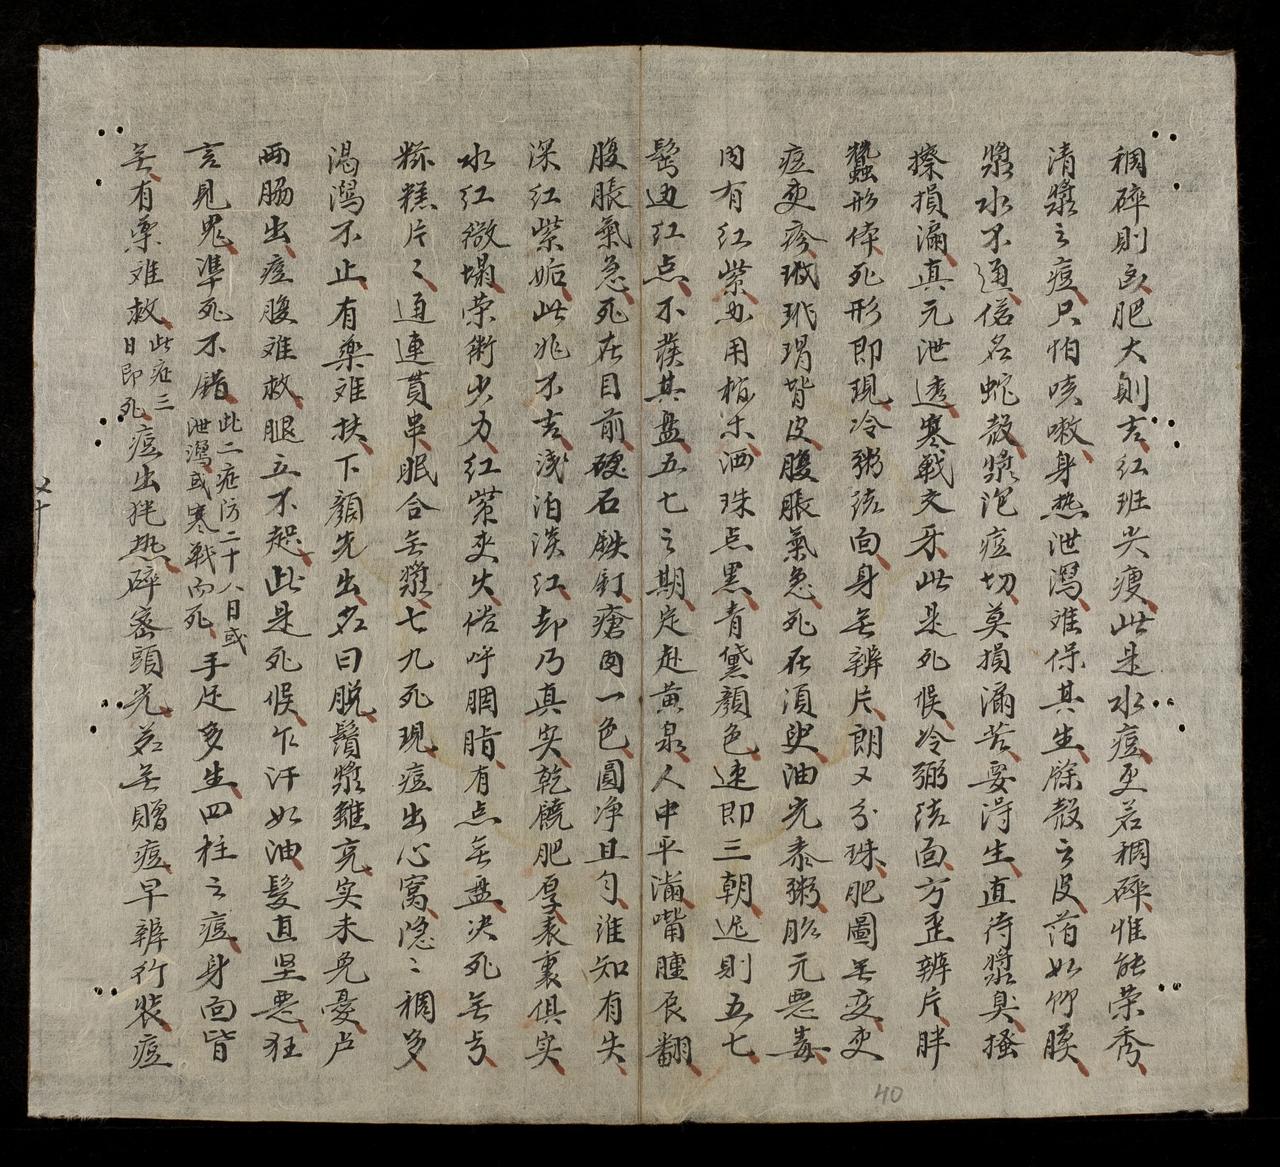 稠碎則凶肥大則吉紅班尖瘦此是水痘更若稠碎惟能荣秀
清漿之痘只怕咳嗽身热泄瀉难保其生除殻之皮荡如竹膜
漿水不通俗名蛇殻漿泡痘切莫損漏若要淂生直待漿臭搔
擦損漏真元泄透寒戦交牙此是死候冷粥结面方歪辨片胖
蠶形体死形即現冷粥结面身无辨片朗又分珠肥圖无变更
痘更疹玳玳瑁皆皮腹脹氣急死在須臾油光黍粥胎元惡毒
内有紅紫如用梅朱洒珠点黒青黛顔色速即三朝遲則五七
髩边红点不蔟其盘五七之期定赴黄泉人中平滿嘴腫唇翻
腹脹氣急死在目前硬石鉄釘瘡肉一色圓净且匀谁知有失
深紅紫姤此兆不吉浅泊淡紅却乃真实乾饒肥厚表裏俱实
水紅微塌荣衛少力紅紫夹火俗呼胭脂有点无盘决死无亏
粽糕片〻通連貫串眠合无漿七九死現痘出心窩隐〻稠多
渴瀉不止有薬难扶下顔先出名曰脱鬚漿雖充实未免憂卢
两肠出痘腹难救腿立不起此是死候乍汗如油髮直坚悪狂
言見鬼準死不錯此二症防二十八日或泄瀉或寒戦而死手足多生四柱之痘身面皆
无有薬难救此症三日即死痘出热碎密頭光若无贈痘早辨行装痘
メ十
40